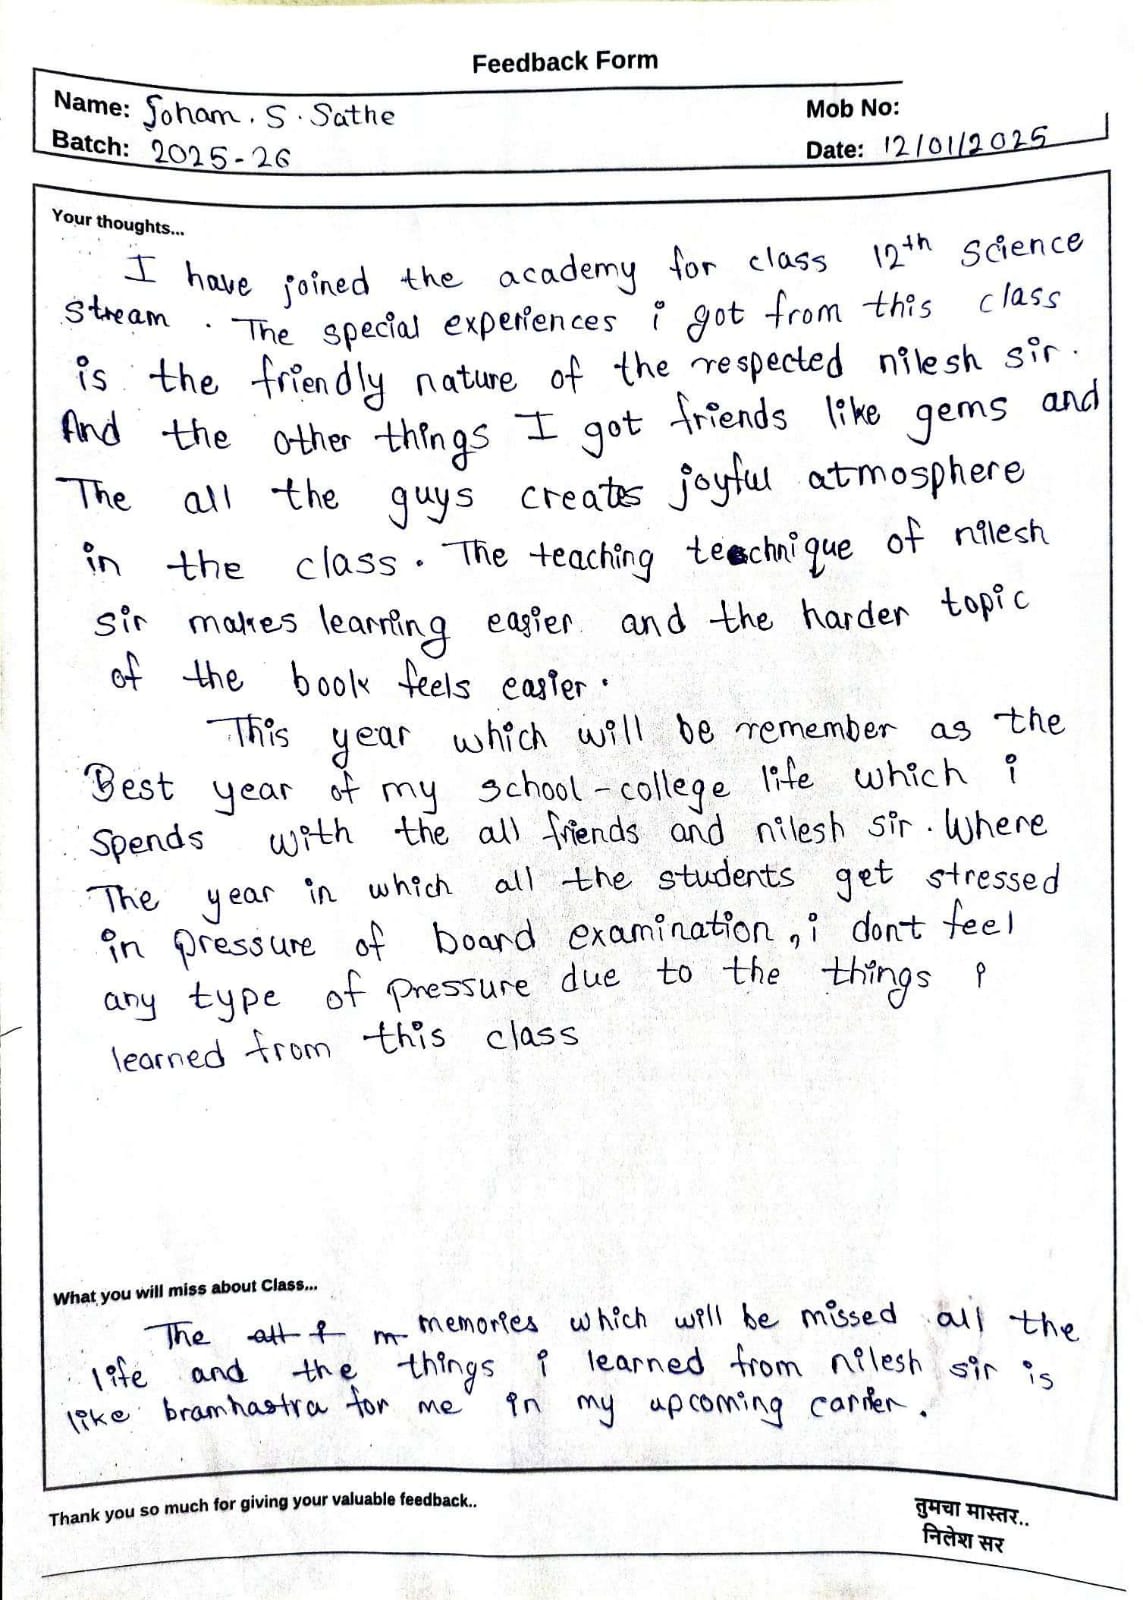 Feedback Form
Name: Soham. S. Sathe
Mob No:
Batch: 2025-26
Date: 12/01/2025
Your thoughts...
I have joined the academy for class 12th science
stream. The special experiences i got from this class
is the friendly nature of the respected nilesh sir.
And the other things I got friends like gems and
The all the guys creates joyful atmosphere
in the class. The teaching teschnique of nilesh
sir makes learning easier and the harder topic
of the book feels easier.
This year which will be remember as the
Best year of my school-college life which i
spends with the all friends and nilesh sir. Where
The year in which all the students get stressed
in pressure of board examination, i don't feel
any type of pressure due to the things i
learned from this class
What you will miss about Class...
The memories which will be missed all the
life and the things i learned from nilesh sir is
like bramhastra for me in my upcoming carrier.
Thank you so much for giving your valuable feedback..
तुमचा मास्तर..
निलेश सर